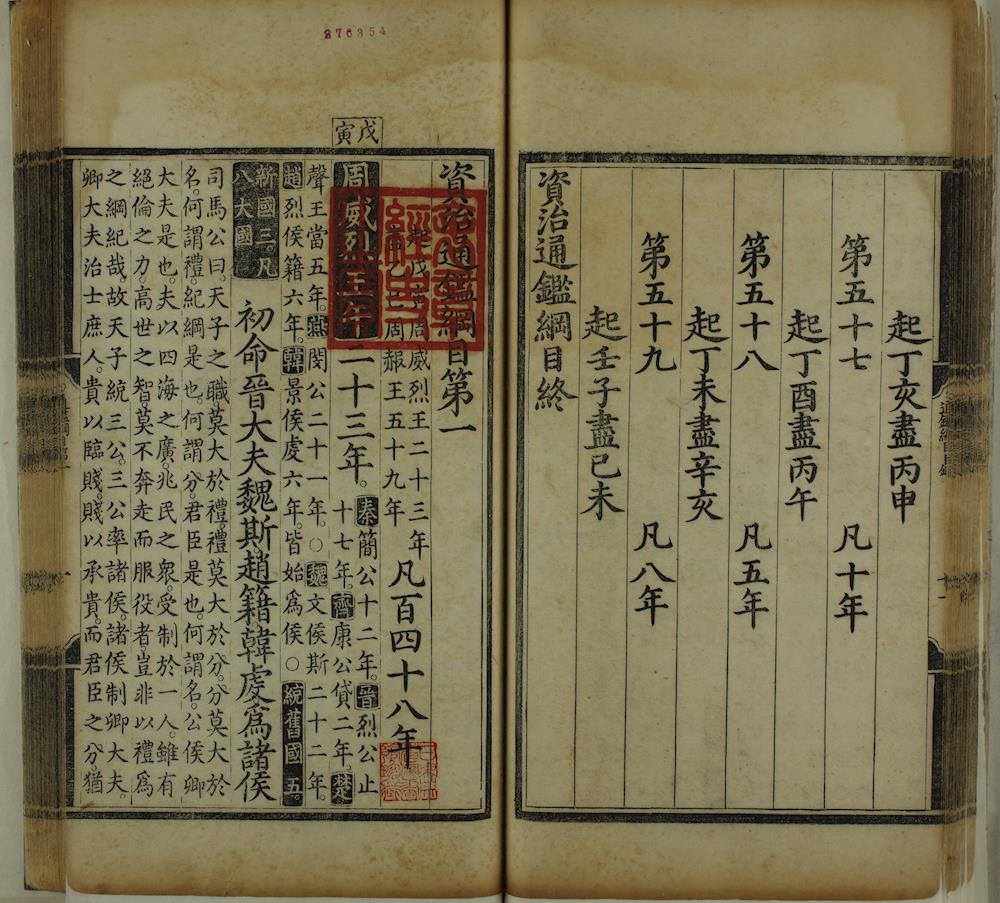 起丁亥盡丙申
第五十七 凡十年
起丁酉盡丙午
第五十八 凡五年
起丁未盡辛亥
第五十九 凡八年
起壬子盡已未
資治通鑑綱目終
276354
資治通鑑綱目第一
起戊寅周威烈王二十三年
盡乙巳周赧王五十九年
凡百四十八年
戊寅
周威烈王二十三年。
秦簡公十二年。晉烈公止
十七年。齊康公貸二年。楚
聲王當五年。燕閔公二十一年。○魏文侯斯二十二年。
趙烈侯籍六年。韓景侯虔六年。皆始爲侯○統舊國五。
新國三。凡
八大國
初命晉大夫魏斯趙籍韓虔爲諸侯
司馬公曰。天子之職莫大於禮。禮莫大於分。分莫大於
名。何謂禮。紀綱是也。何謂分。君臣是也。何謂名。公侯卿
大夫是也。夫以四海之廣。兆民之衆。受制於一人。雖有
絕倫之力。高世之智。莫不奔走而服役者。豈非以禮爲
之綱紀哉。故天子統三公。三公率諸侯。諸侯制卿大夫。
卿大夫治士庶人。貴以臨賤。賤以承貴。而君臣之分。猶